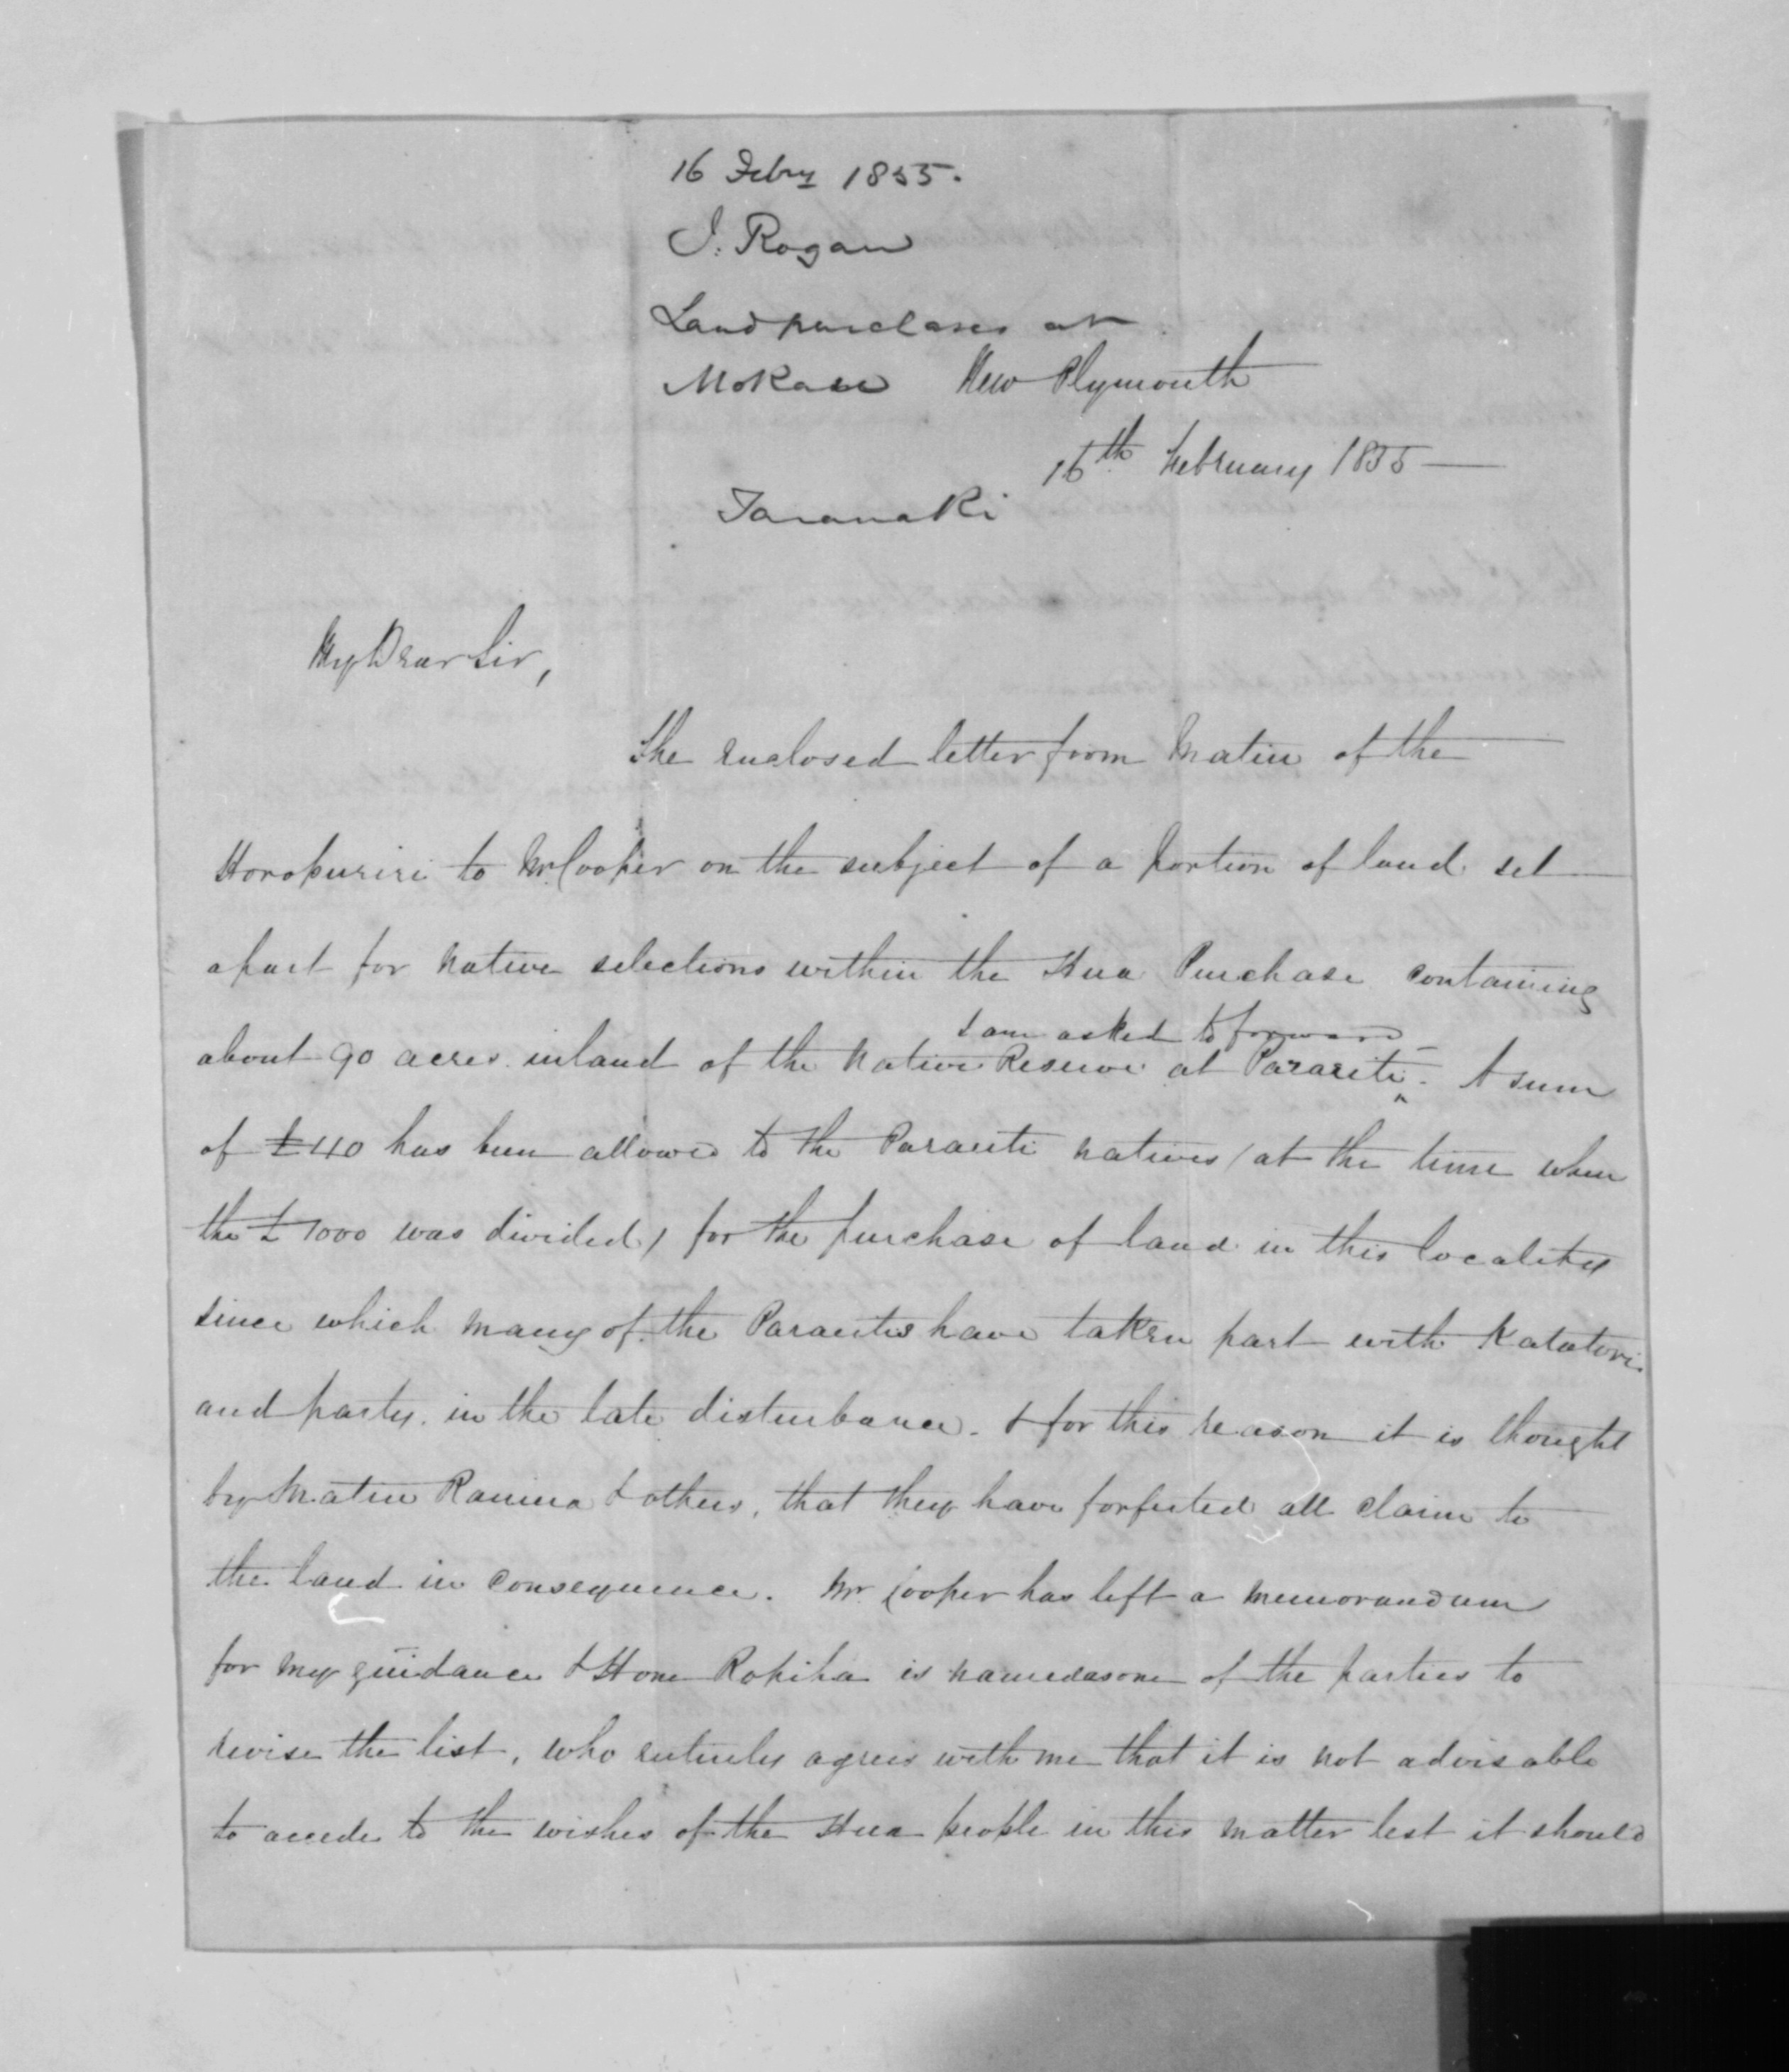 16 Febry 1855.
J. Rogan
Land purchases at
Mokau
New Plymouth
16th February 1855
Taranaki
My Dear Sir,
The enclosed letter from Matiu of the
Horopuriri to Mr Cooper on the subject of a portion of land set
apart for native selections within the Hua Purchase containing
I am asked to forward
about 90 acres inland of the Native Reserve at Pararite. A sum
of £40 has been allowed to the Pararite natives (at the time when
the £1000 was divided) for the purchase of land in this locality
since which many of the Pararites have taken part with Katatori
and party in the late disturbance. & for this reason it is thought
by Matiu Raniera & others, that they have forfeited all claim to
the land in consequence. Mr. Cooper has left a memorandum
for my guidance & Hone Ropiha is named as one of the parties to
revise the list, who entirely agrees with me that it is not advisable
to accede to the wishes of the Hua people in this matter lest it should